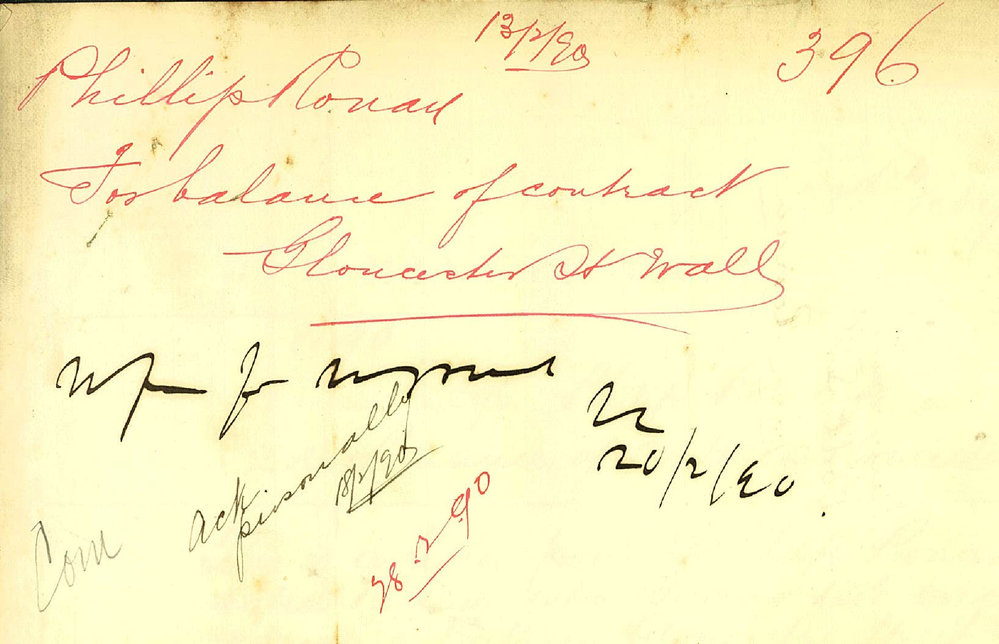 13/2/90
396
Phillip Ronan
For balance of contract
Gloucester St Wall
Refer for
20/2/90.
Ack personally
18/2/90
Com
28.2.90